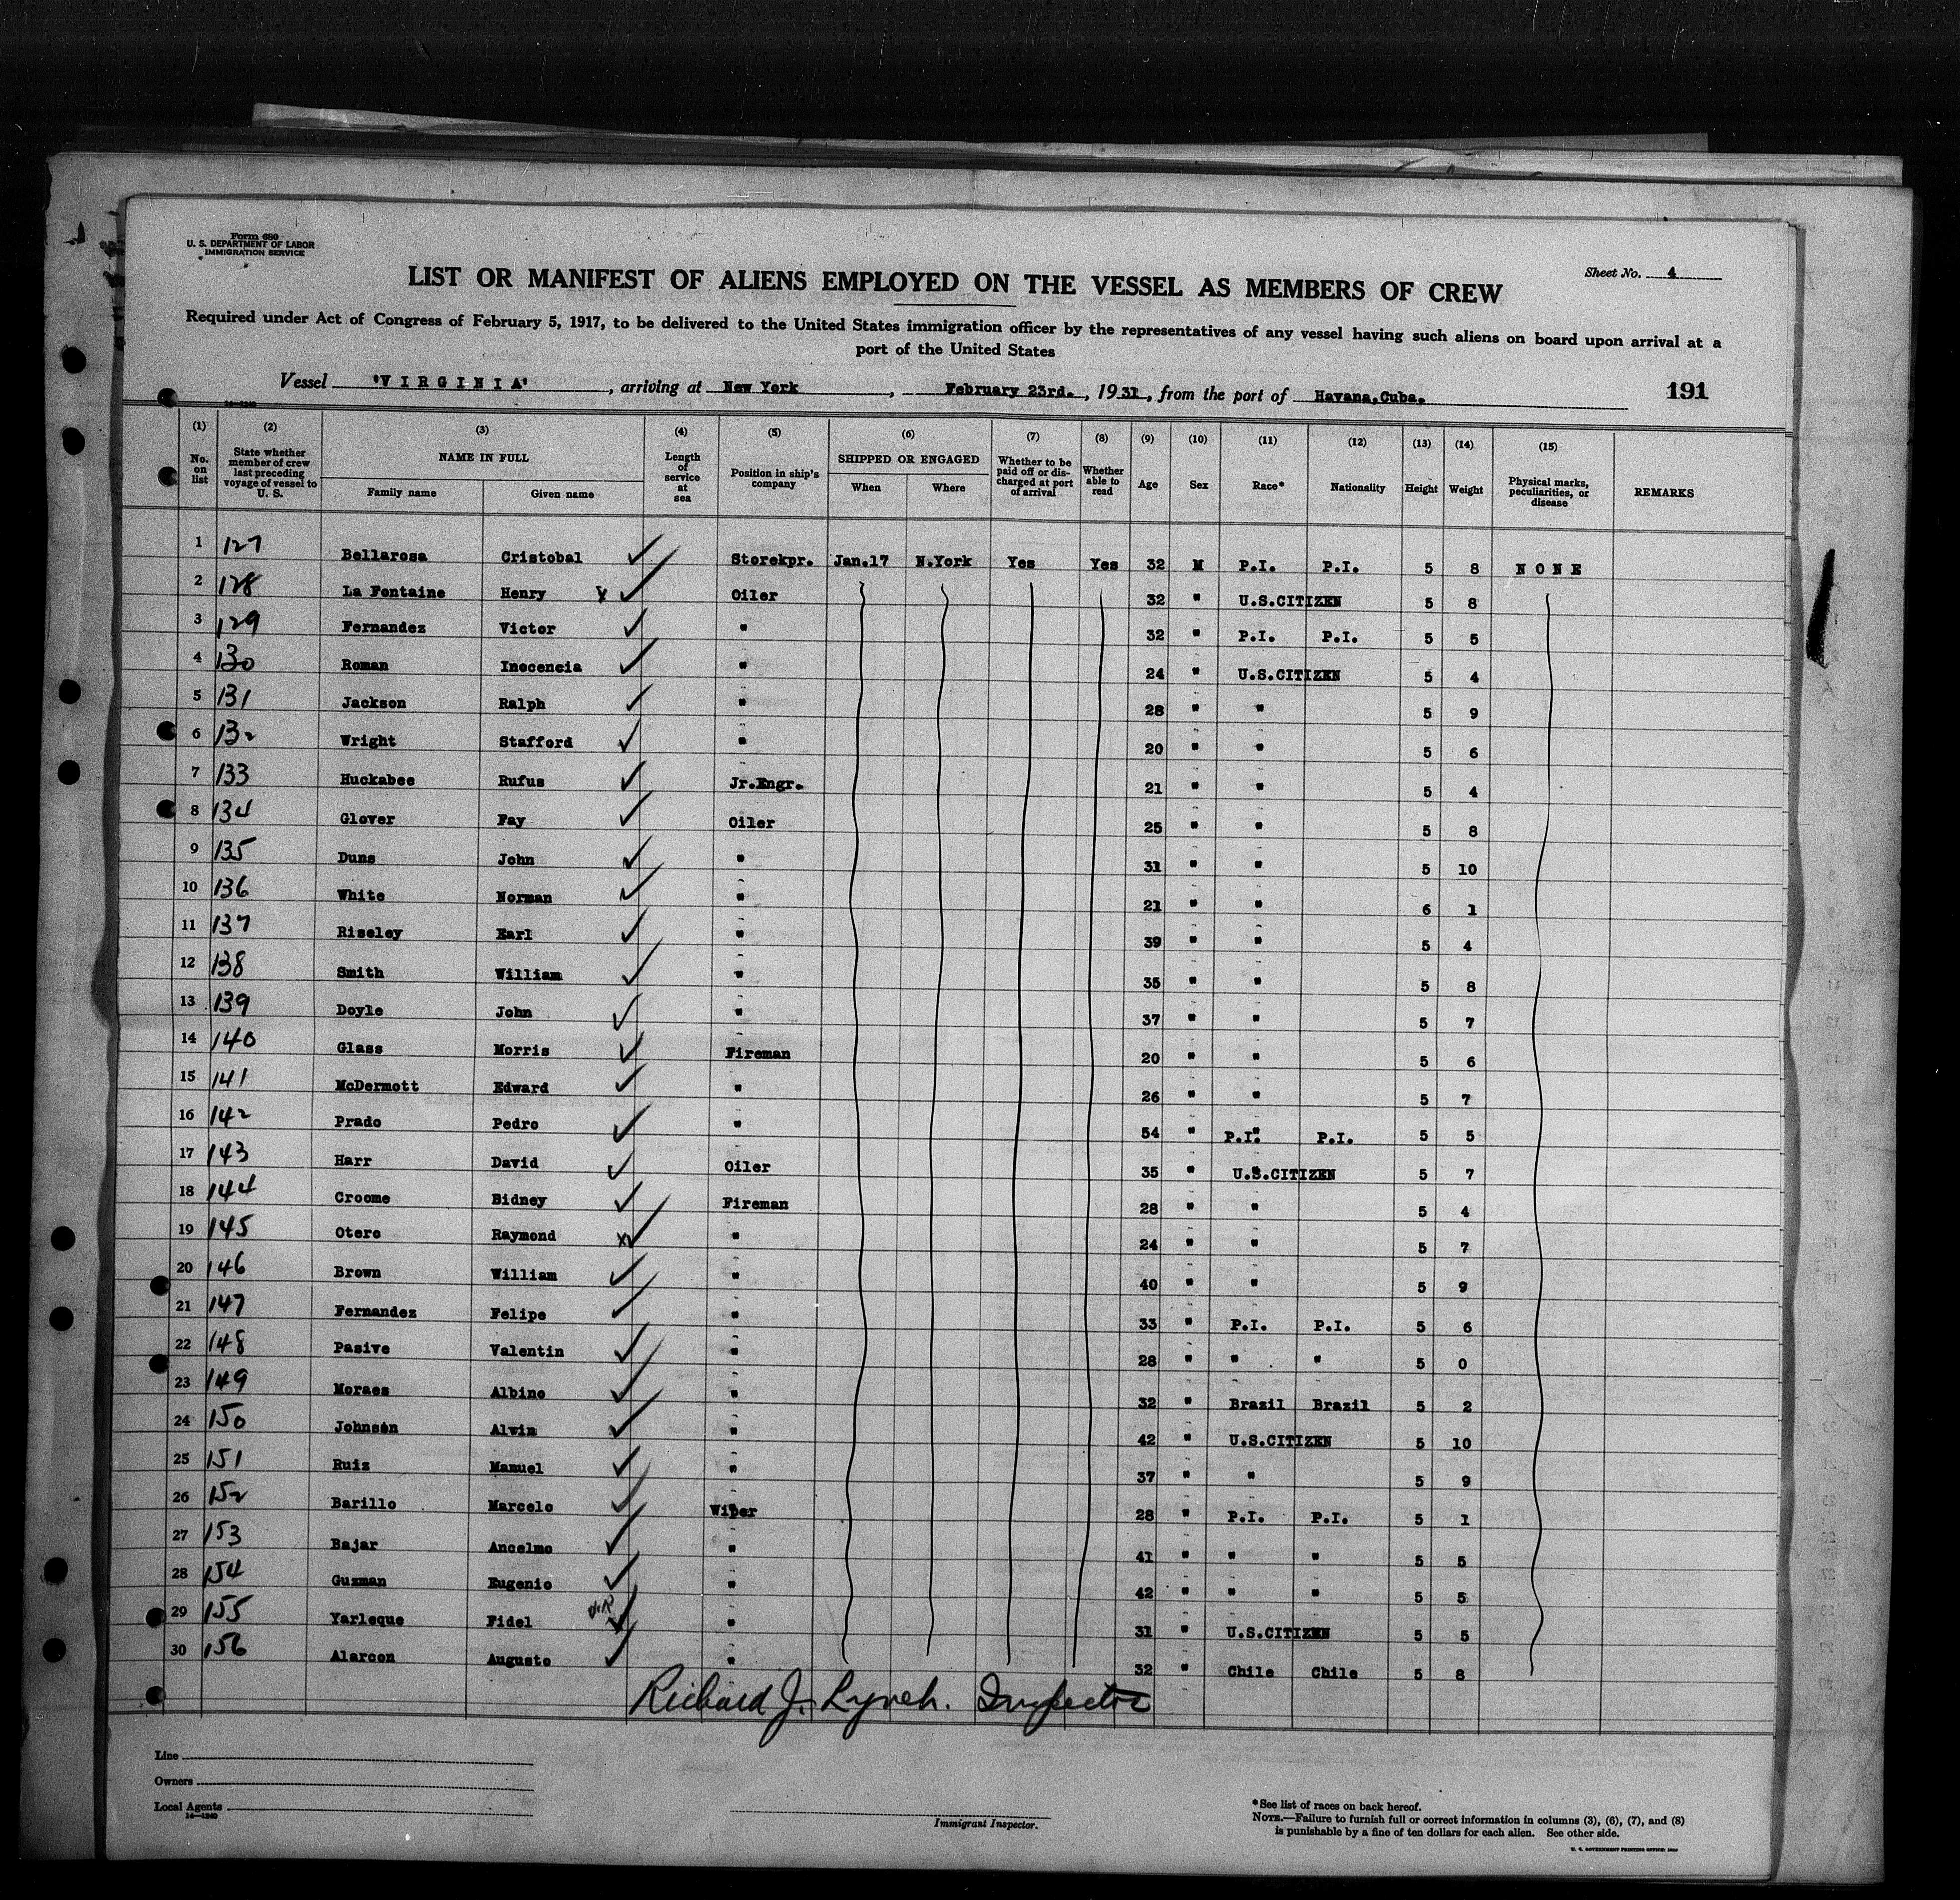 Form 680
U. S. DEPARTMENT OF LABOR
IMMIGRATION SERVICE
Sheet No. 4
LIST OR MANIFEST OF ALIENS EMPLOYED ON THE VESSEL AS MEMBERS OF CREW
Required under Act of Congress of February 5, 1917, to be delivered to the United States immigration officer by the representatives of any vessel having such aliens on board upon arrival at a
port of the United States
Vessel "VIRGINIA", arriving at New York, February 23rd., 1931, from the port of Havana,Cuba. 191
14—1240
(1) (2) (3) (4) (5) (6) (7) (8) (9) (10) (11) (12) (13) (14) (15)
No. on list State whether member of crew last preceding voyage of vessel to U. S. NAME IN FULL Family name Given name Length of service at sea Position in ship's company SHIPPED OR ENGAGED When Where Whether to be paid off or discharged at port of arrival Whether able to read Age Sex Race* Nationality Height Weight Physical marks, peculiarities, or disease REMARKS
1 127 Bellarosa Cristobal ✓ Storekpr. Jan.17 N.York Yes Yes 32 M P.I. P.I. 5 8 NONE
2 128 La Fontaine Henry x ✓ Oiler 32 " U.S.CITIZEN 5 8
3 129 Fernandez Victor ✓ " 32 " P.I. P.I. 5 5
4 130 Roman Inocencia ✓ " 24 " U.S.CITIZEN 5 4
5 131 Jackson Ralph ✓ " 28 " " 5 9
6 132 Wright Stafford ✓ " 20 " " 5 6
7 133 Huckabee Rufus ✓ Jr.Engr. 21 " " 5 4
8 134 Glover Fay ✓ Oiler 25 " " 5 8
9 135 Duns John ✓ " 31 " " 5 10
10 136 White Norman ✓ " 21 " " 6 1
11 137 Riseley Earl ✓ " 39 " " 5 4
12 138 Smith William ✓ " 35 " " 5 8
13 139 Doyle John ✓ " 37 " " 5 7
14 140 Glass Morris ✓ Fireman 20 " " 5 6
15 141 McDermott Edward ✓ " 26 " " 5 7
16 142 Prado Pedro ✓ " 54 " P.I. P.I. 5 5
17 143 Harr David ✓ Oiler 35 " U.S.CITIZEN 5 7
18 144 Croome Bidney ✓ Fireman 28 " " 5 4
19 145 Otero Raymond x ✓ " 24 " " 5 7
20 146 Brown William ✓ " 40 " " 5 9
21 147 Fernandez Felipe ✓ " 33 " P.I. P.I. 5 6
22 148 Pasive Valentin ✓ " 28 " " " 5 0
23 149 Moraes Albino ✓ " 32 " Brazil Brazil 5 2
24 150 Johnson Alvin ✓ " 42 " U.S.CITIZEN 5 10
25 151 Ruiz Manuel ✓ " 37 " " 5 9
26 152 Barillo Marcelo ✓ Wiper 28 " P.I. P.I. 5 1
27 153 Bajar Ancelmo ✓ " 41 " " " 5 5
28 154 Guzman Eugenio ✓ " 42 " " " 5 5
29 155 Yarleque Fidel ✓ " 31 " U.S.CITIZEN 5 5
30 156 Alarcon Augusto ✓ " 32 " Chile Chile 5 8
Richard J. Lynch. Inspector
Line
Owners
Local Agents
14—1240
Immigrant Inspector.
*See list of races on back hereof.
NOTE.—Failure to furnish full or correct information in columns (3), (6), (7), and (8)
is punishable by a fine of ten dollars for each alien. See other side.